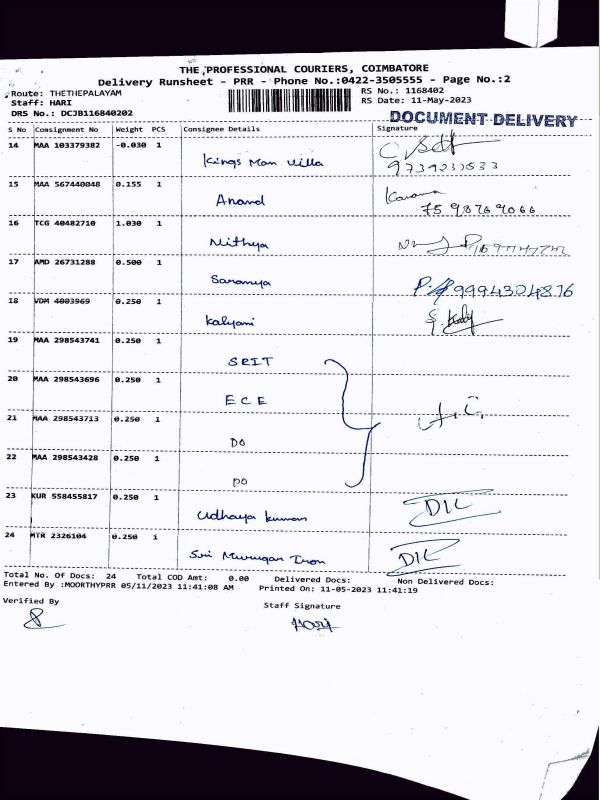 THE PROFESSIONAL COURIERS, COIMBATORE
Delivery Runsheet - PRR - Phone No.:0422-3505555 - Page No.:2
Route: THETHEPALAYAM
RS No.: 1168402
Staff: HARI
RS Date: 11-May-2023
DRS No.: DCJB116840202
DOCUMENT DELIVERY
S No Consignment No Weight PCS Consignee Details Signature
14 MAA 103379382 -0.030 1
Kings Man Villa
15 MAA 567440048 0.155 1
Anand
16 TCG 40482710 1.030 1
Nithya
17 AMD 26731288 0.500 1
Saranya 99943204876
18 VDM 4003969 0.250 1
Kalyani
19 MAA 298543741 0.250 1
SRIT
20 MAA 298543696 0.250 1
ECE
21 MAA 298543713 0.250 1
DO
22 MAA 298543428 0.250 1
DO
23 KUR 558455817 0.250 1
Udhaya kumar DIL
24 MTR 2326104 0.250 1
Sri Murugan Iron DIL
Total No. Of Docs: 24 Total COD Amt: 0.00 Delivered Docs: Non Delivered Docs:
Entered By :MOORTHYPRR 05/11/2023 11:41:08 AM Printed On: 11-05-2023 11:41:19
Verified By
Staff Signature